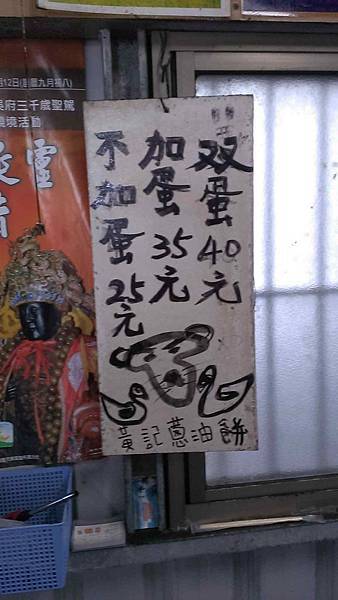 双蛋40元
加蛋35元
不加蛋25元
黃記蔥油餅
月12日(農曆九月初八)
吳府三千歲聖駕
遶境活動
靈